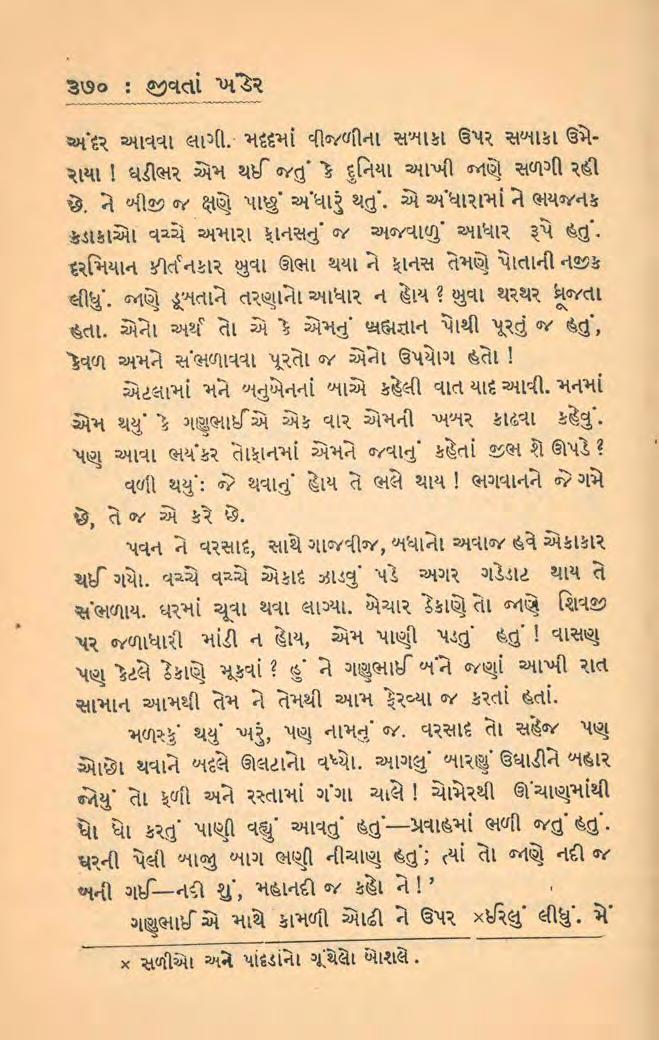 ૩૭૦ : જીવતાં ખંડેર
અંદર આવવા લાગી. મદદમાં વીજળીના સબાકા ઉપર સબાકા ઉમે-
રાયા ! ઘડીભર એમ થઈ જતું કે દુનિયા આખી જાણે સળગી રહી
છે. ને બીજી જ ક્ષણે પાછું અંધારું થતું. એ અંધારામાં ને ભયજનક
કડાકાઓ વચ્ચે અમારા ફાનસનું જ અજવાળું આધાર રૂપે હતું.
દરમિયાન કીર્તનકાર બુવા ઊભા થયા ને ફાનસ તેમણે પોતાની નજીક
લીધું. જાણે ડૂબતાને તરણાનો આધાર ન હોય ? બુવા થરથર ધ્રૂજતા
હતા. એનો અર્થ તો એ કે એમનું બ્રહ્મજ્ઞાન પોથી પૂરતું જ હતું,
કેવળ અમને સંભળાવવા પૂરતો જ એનો ઉપયોગ હતો !
એટલામાં મને બનુબેનનાં બાએ કહેલી વાત યાદ આવી. મનમાં
એમ થયું કે ગણુભાઈએ એક વાર એમની ખબર કાઢવા કહેવું.
પણ આવા ભયંકર તોફાનમાં એમને જવાનું કહેતાં જીભ શે ઊપડે ?
વળી થયું: જે થવાનું હોય તે ભલે થાય ! ભગવાનને જે ગમે
છે, તે જ એ કરે છે.
પવન ને વરસાદ, સાથે ગાજવીજ, બધાનો અવાજ હવે એકાકાર
થઈ ગયો. વચ્ચે વચ્ચે એકાદ ઝાડવું પડે અગર ગડેડાટ થાય તે
સંભળાય. ઘરમાં ચૂવા થવા લાગ્યા. બેચાર ઠેકાણે તો જાણે શિવજી
પર જળાધારી માંડી ન હોય, એમ પાણી પડતું હતું ! વાસણ
પણ કેટલે ઠેકાણે મૂકવાં ? હું ને ગણુભાઈ બંને જણાં આખી રાત
સામાન આમથી તેમ ને તેમથી આમ ફેરવ્યા જ કરતાં હતાં.
મળસ્કું થયું ખરું, પણ નામનું જ. વરસાદ તો સહેજ પણ
ઓછો થવાને બદલે ઊલટાનો વધ્યો. આગલું બારણું ઉઘાડીને બહાર
જોયું તો ફળી અને રસ્તામાં ગંગા ચાલે ! ચોમેરથી ઊંચાણમાંથી
ધો ધો કરતું પાણી વહ્યું આવતું હતું—પ્રવાહમાં ભળી જતું હતું.
ઘરની પેલી બાજુ બાગ ભણી નીચાણ હતું; ત્યાં તો જાણે નદી જ
બની ગઈ—નદી શું, મહાનદી જ કહો ને !’
ગણુભાઈએ માથે કામળી ઓઢી ને ઉપર ×ઈરલું લીધું. મેં
× સળીઓ અને પાંદડાંનો ગૂંથેલો બોશલે.